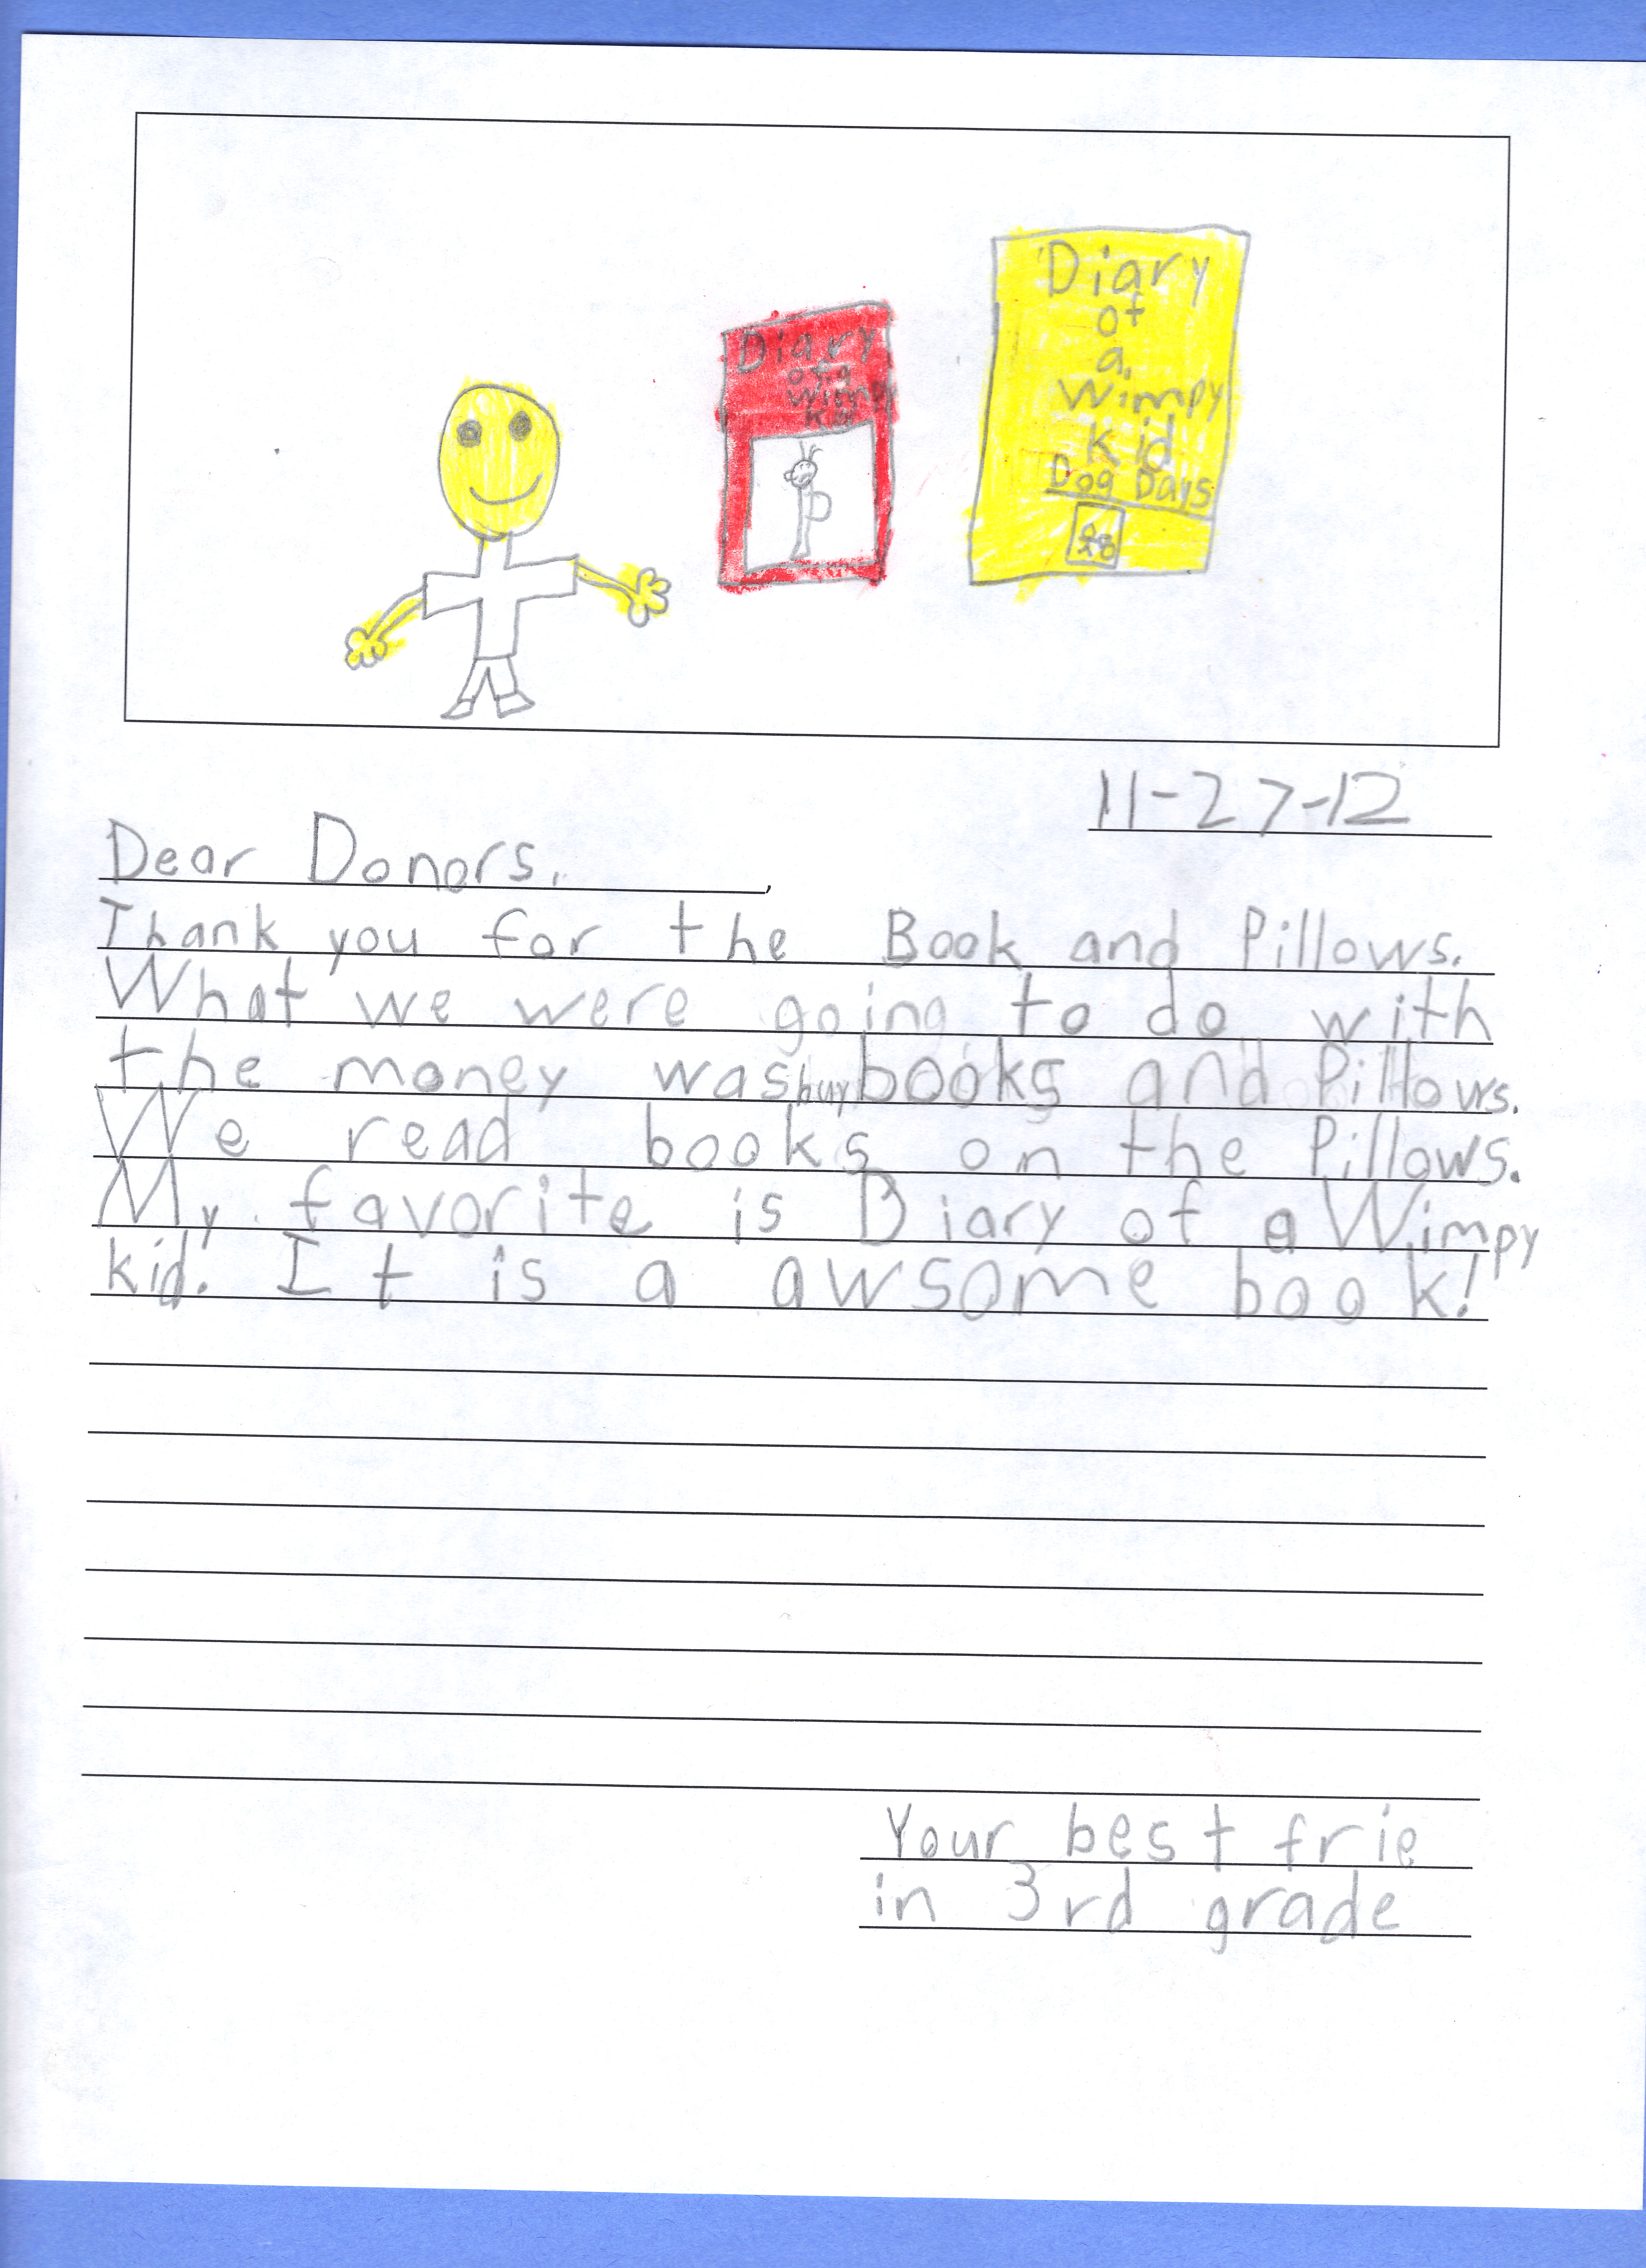 Diary
of a
Wimpy
Kid
Diary
of
a
Wimpy
Kid
Dog Days
11-27-12
Dear Donors,
Thank you for the Book and Pillows.
What we were going to do with
the money was buy books and Pillows.
We read books on the Pillows.
My favorite is Diary of a Wimpy
kid. It is a awsome book!
Your best frie
in 3rd grade